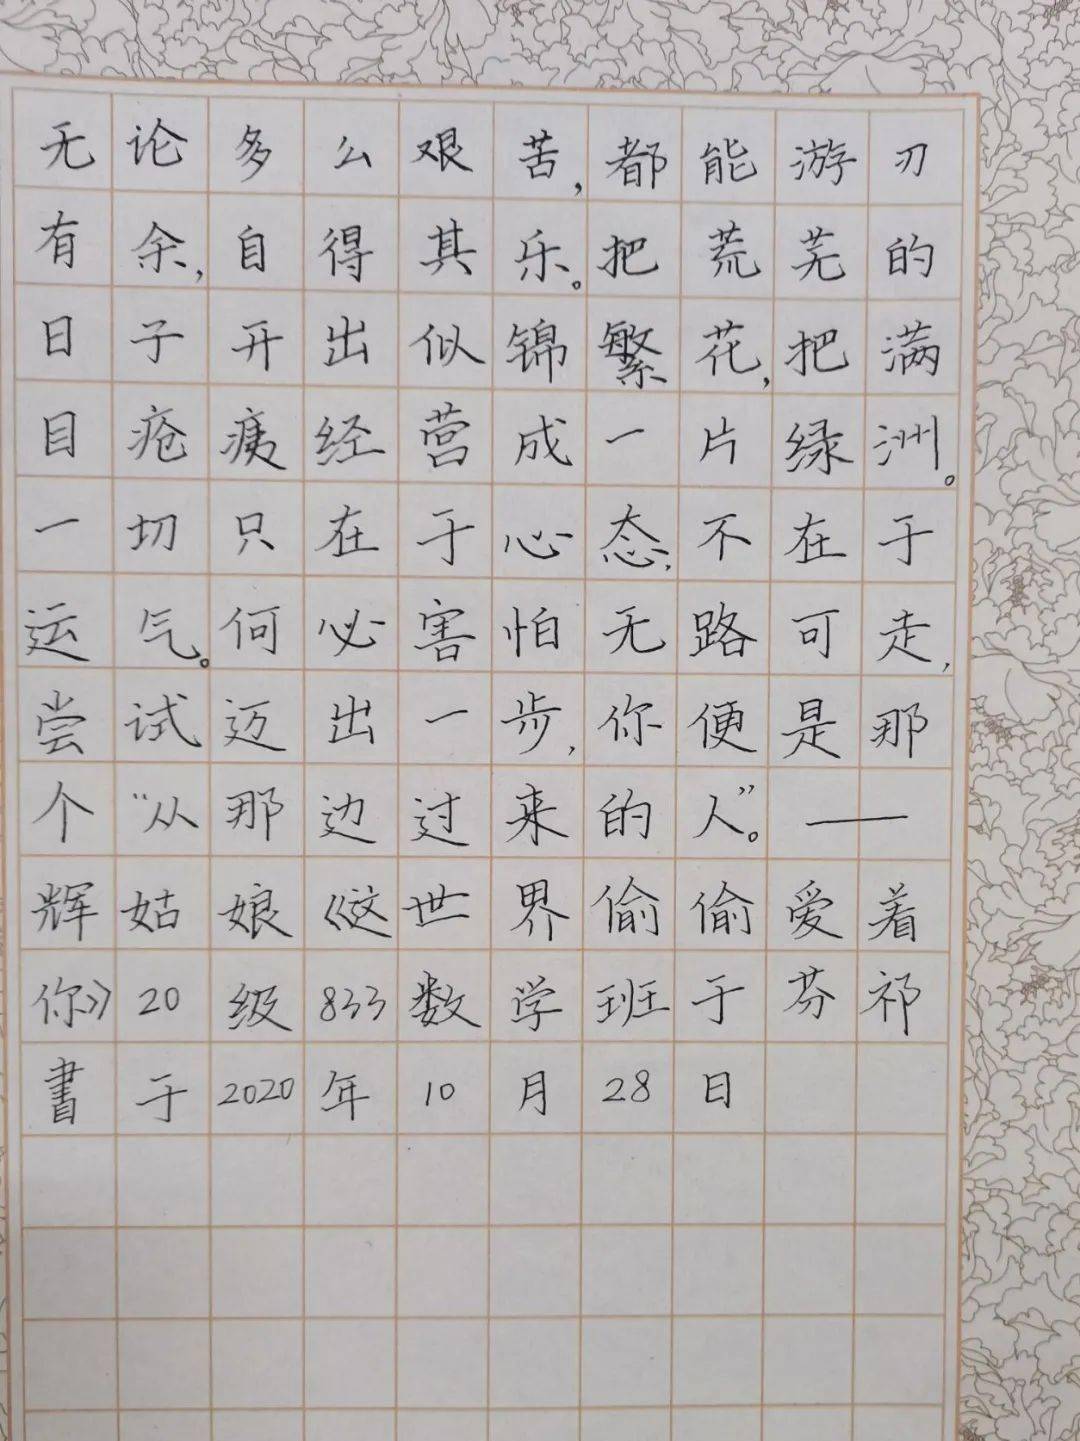 无论多么艰苦,都能游刃
有余,自得其乐。把荒芜的
日子开出似锦繁花,把满
目疮痍经营成一片绿洲。
一切只在于心态,不在于
运气。何必害怕无路可走,
尝试迈出一步,你便是那
个“从那边过来的人”。——
辉姑娘《这世界偷偷爱着
你》20级833数学班于芬祁
書于2020年10月28日